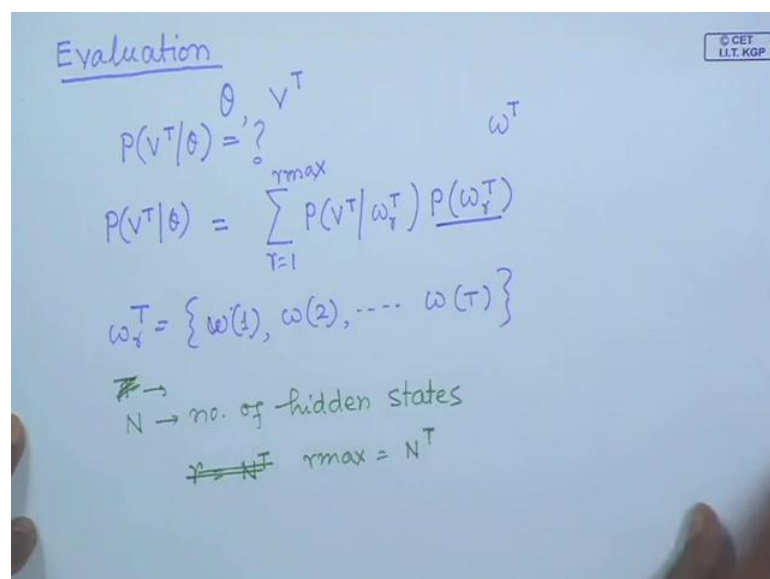 Evaluation
© CET
I.I.T. KGP
θ, V^T
P(V^T/θ) = ?
ω^T
P(V^T|θ) = ∑_{r=1}^{rmax} P(V^T|ω_r^T) P(ω_r^T)
ω_r^T = {ω(1), ω(2), ---- ω(T)}
→
N → no. of hidden states
r = N^T rmax = N^T